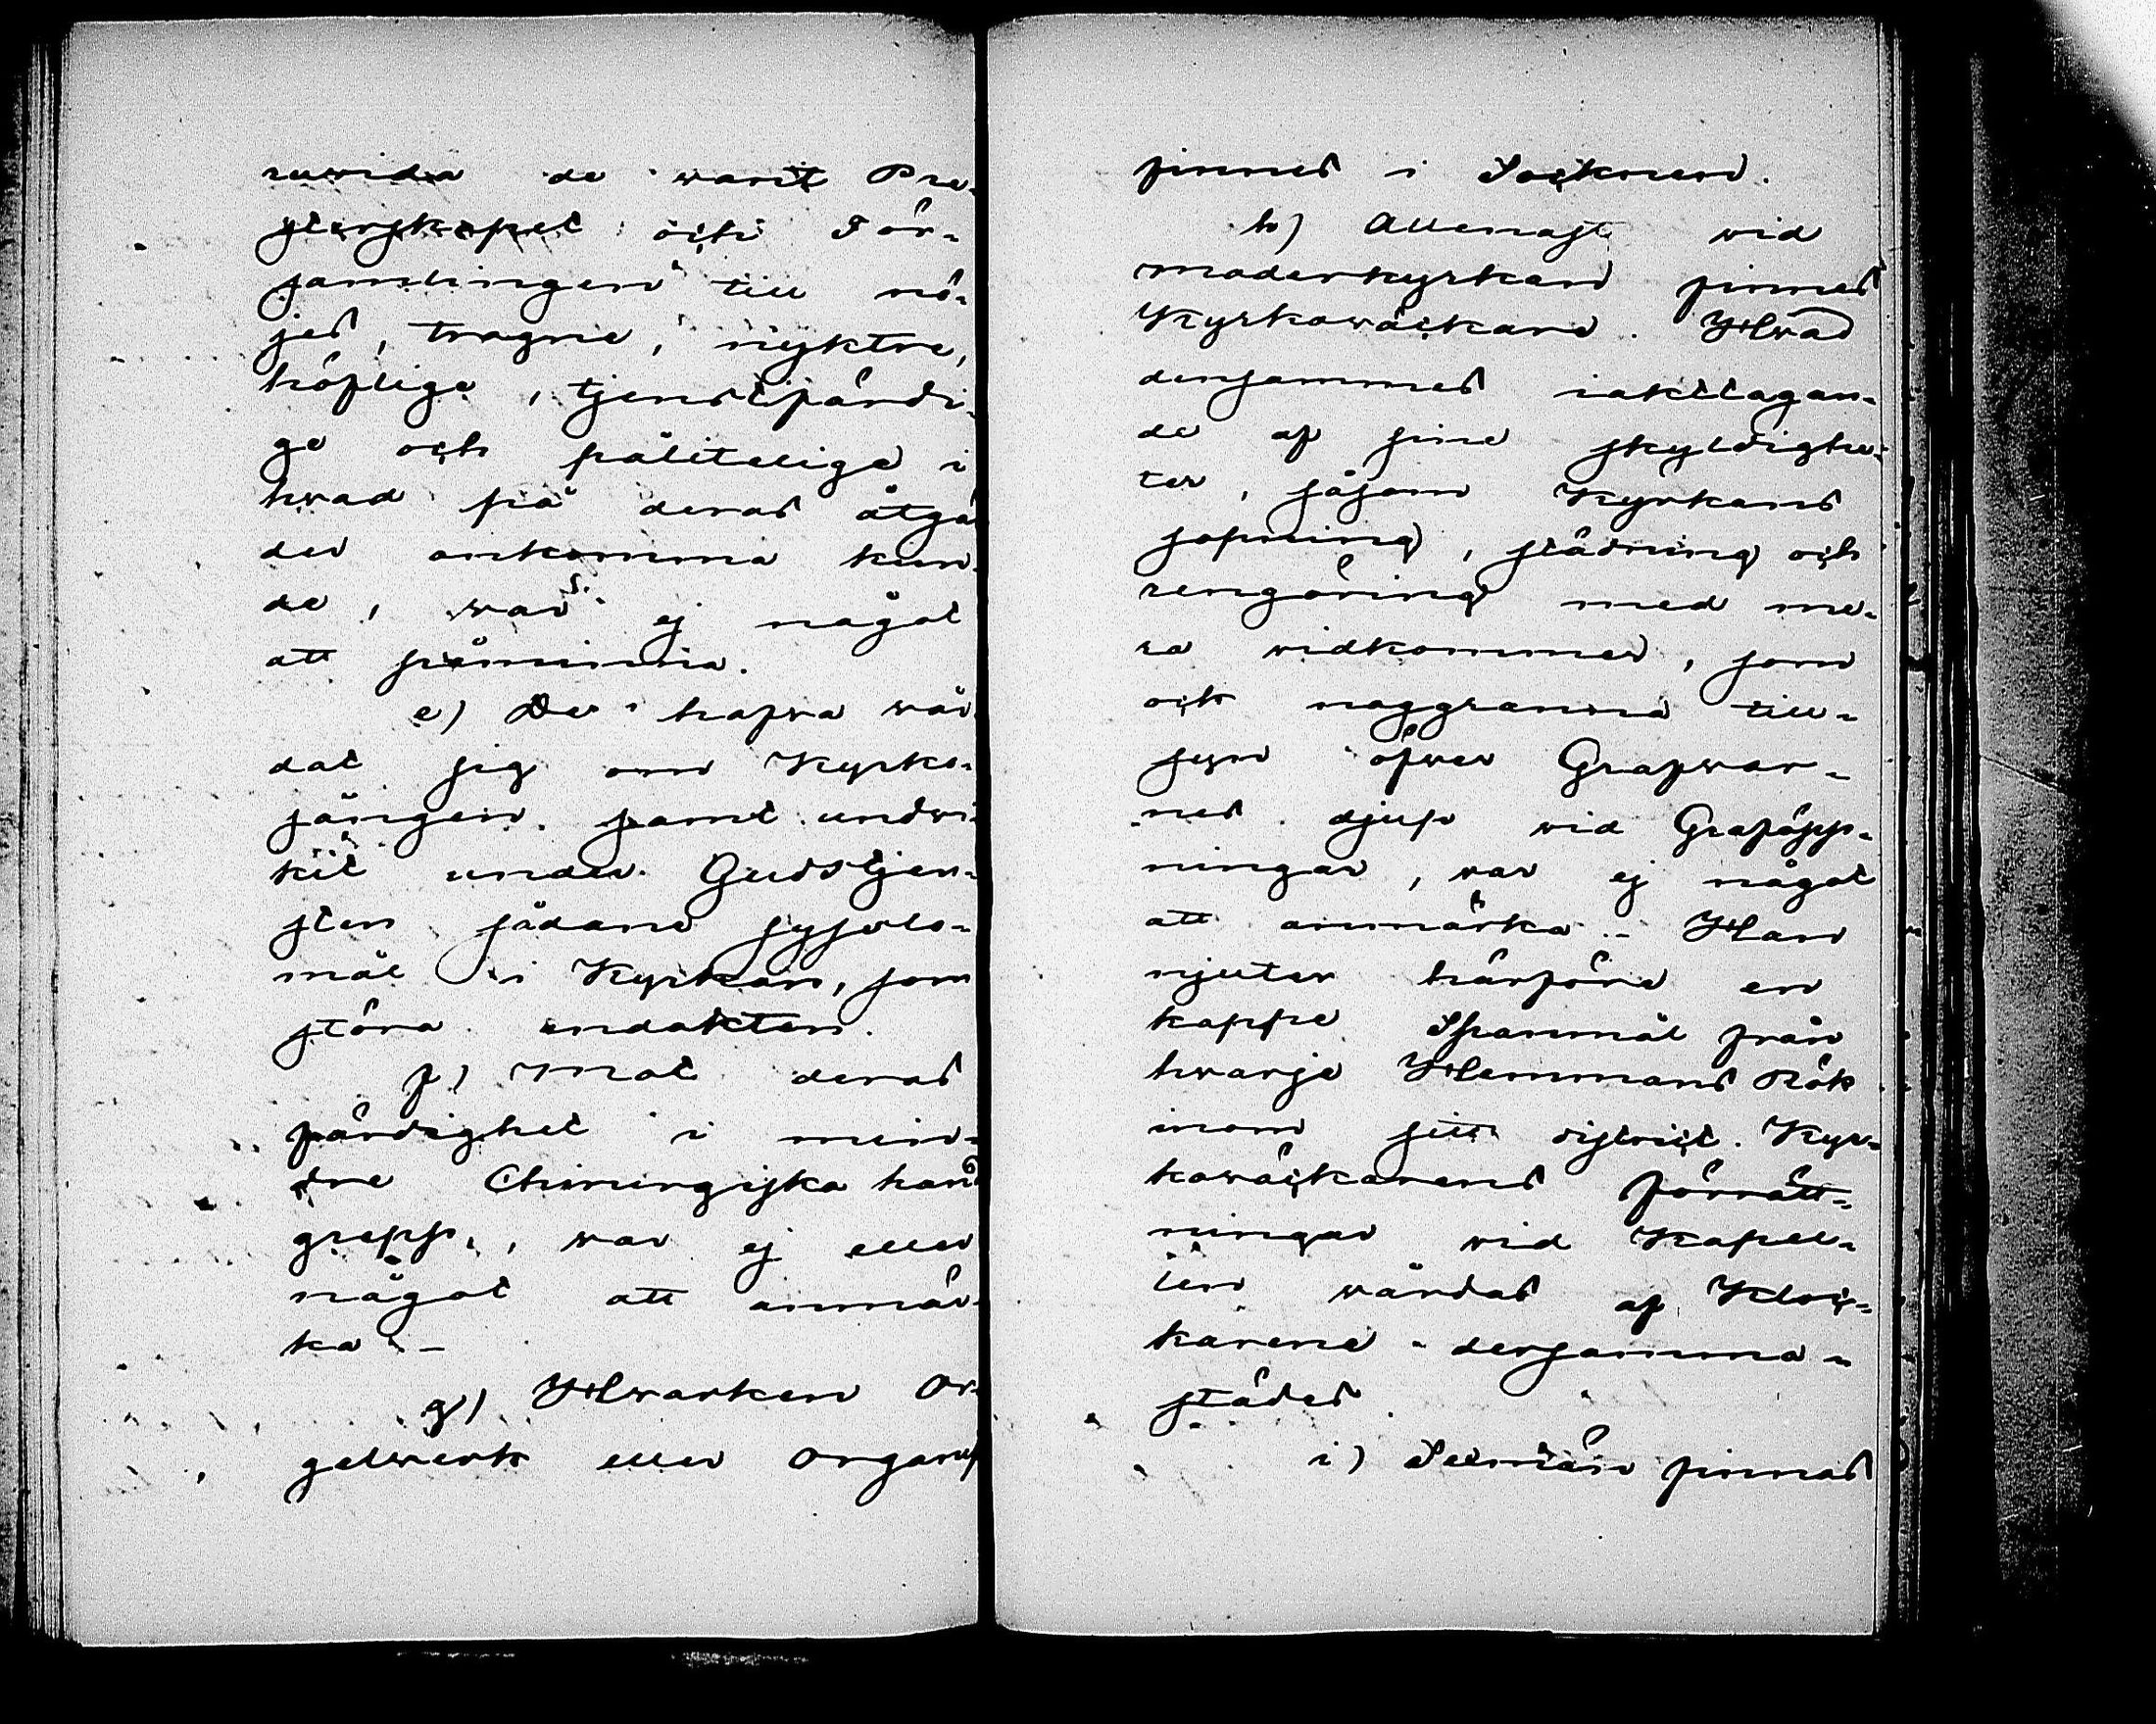 ruvida de varit Pre-
sterskapet och För-
samlingen till nö-
jes, trogne, nyktre,
höflige, tjenstfärdi-
ge och pålitelige i
hvad på deras åtgär
der ankomma kun-
de, var ej något
att påminna.
e) De hafva vår
dat sig om Kyrko-
sången samt undvi-
kit under Gudstjen-
sten sådane sysslo-
mål i Kyrkan, som
störa andakten.
f) Mot deras
färdighet i min-
dre Chirurgiska hand
grepp, var ej eller
något att anmär-
ka. -
g) Hvarken Or-
gelverk eller Organist
finnes i Socknen.
h) Allenast vid
moderkyrkan finnes
Kyrkoväckare. Hvad
densammes iakttagan-
de af sine skyldighe-
ter, såsom Kyrkans
sopning, städning och
rengöring med me-
ra vidkommer, som
ock noggranna till-
syn öfver Grafvar-
nes djup vid Graföpp-
ningar, var ej något
att anmärka. - Han
njuter härföre en
kappe Spanmål från
hvarje Hemmans Rök
inom sitt district. Kyr-
koväckarens förrätt-
ningar vid Kapel-
len vårdas af Kloc-
karene dersamma-
städes.
i) finnas